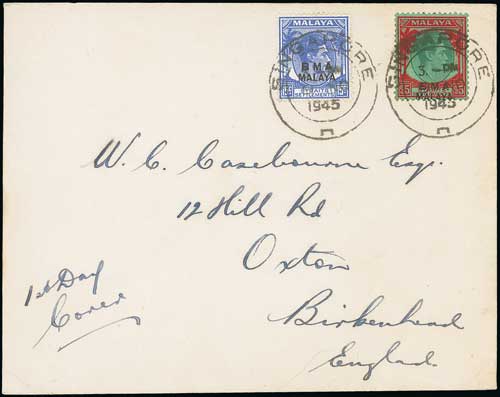 MALAYA
BMA
MALAYA
STRAITS
SETTLEMENTS
SINGAPORE
1945
MALAYA
BMA
MALAYA
SINGAPORE
3.-PM
1945
W. C. Casebourne Esq.
12 Hill Rd
Oxton
Birkenhead
England.
1st Day
Cover